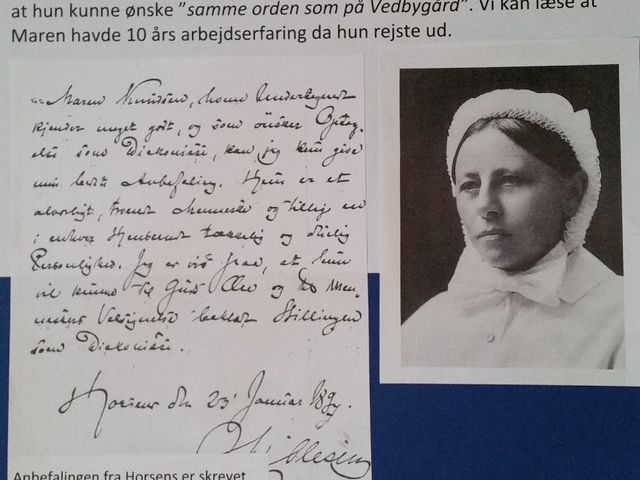 at hun kunne ønske "samme orden som på Vedbygård". Vi kan læse at
Maren havde 10 års arbejdserfaring da hun rejste ud.
Maren Knudsen, hvem Undertegnede
kjender meget godt, og som ønsker Optag-
else som Diakonisse, kan jeg kun give
min bedste Anbefaling. Hun er et
alvorligt, troende Menneske og tillige en
i enhver Henseende tækkelig og dulig
Personlighed. Jeg er vis paa, at hun
vil kunne til Guds Ære og Men-
neskers Velsignelse beklæde Stillingen
som Diakonisse.
Horsens den 23' Januar
Anbefalingen fra Horsens er skrevet